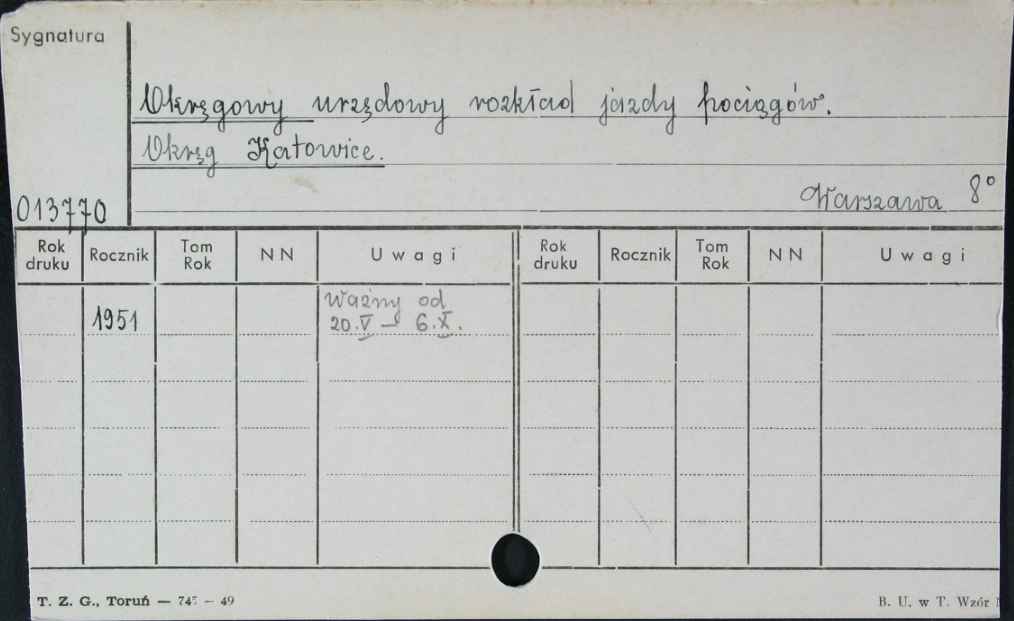 Sygnatura
Okręgowy urzędowy rozkład jazdy pociągów.
Okręg Katowice.
Warszawa 8°
013770
Rok druku Rocznik Tom Rok NN Uwagi Rok druku Rocznik Tom Rok NN Uwagi
Ważny od
1951 20.V – 6.X.
T. Z. G., Toruń — 745 – 49 B. U. w T. Wzór